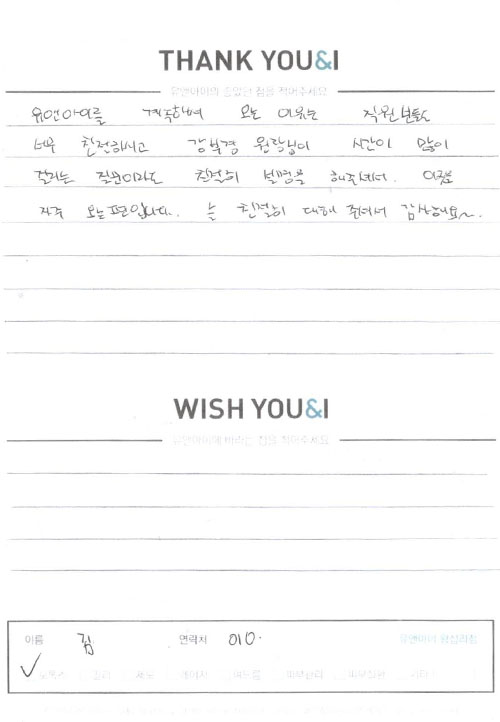 THANK YOU&I
유앤아이의 좋았던 점을 적어주세요
유앤아이를 계속하여 오는 이유는 직원분들도
너무 친절하시고 강보경 원장님이 시간이 많이
걸리는 질문이라도 친절히 설명을 해주셔서. 이곳을
자주 오는편입니다. 늘 친절히 대해 주셔서 감사해요~
WISH YOU&I
유앤아이에 바라는 점을 적어주세요
이름 김 연락처 010- 유앤아이 왕십리점
보톡스 필러 제모 레이저 여드름 피부관리 피부질환 기타